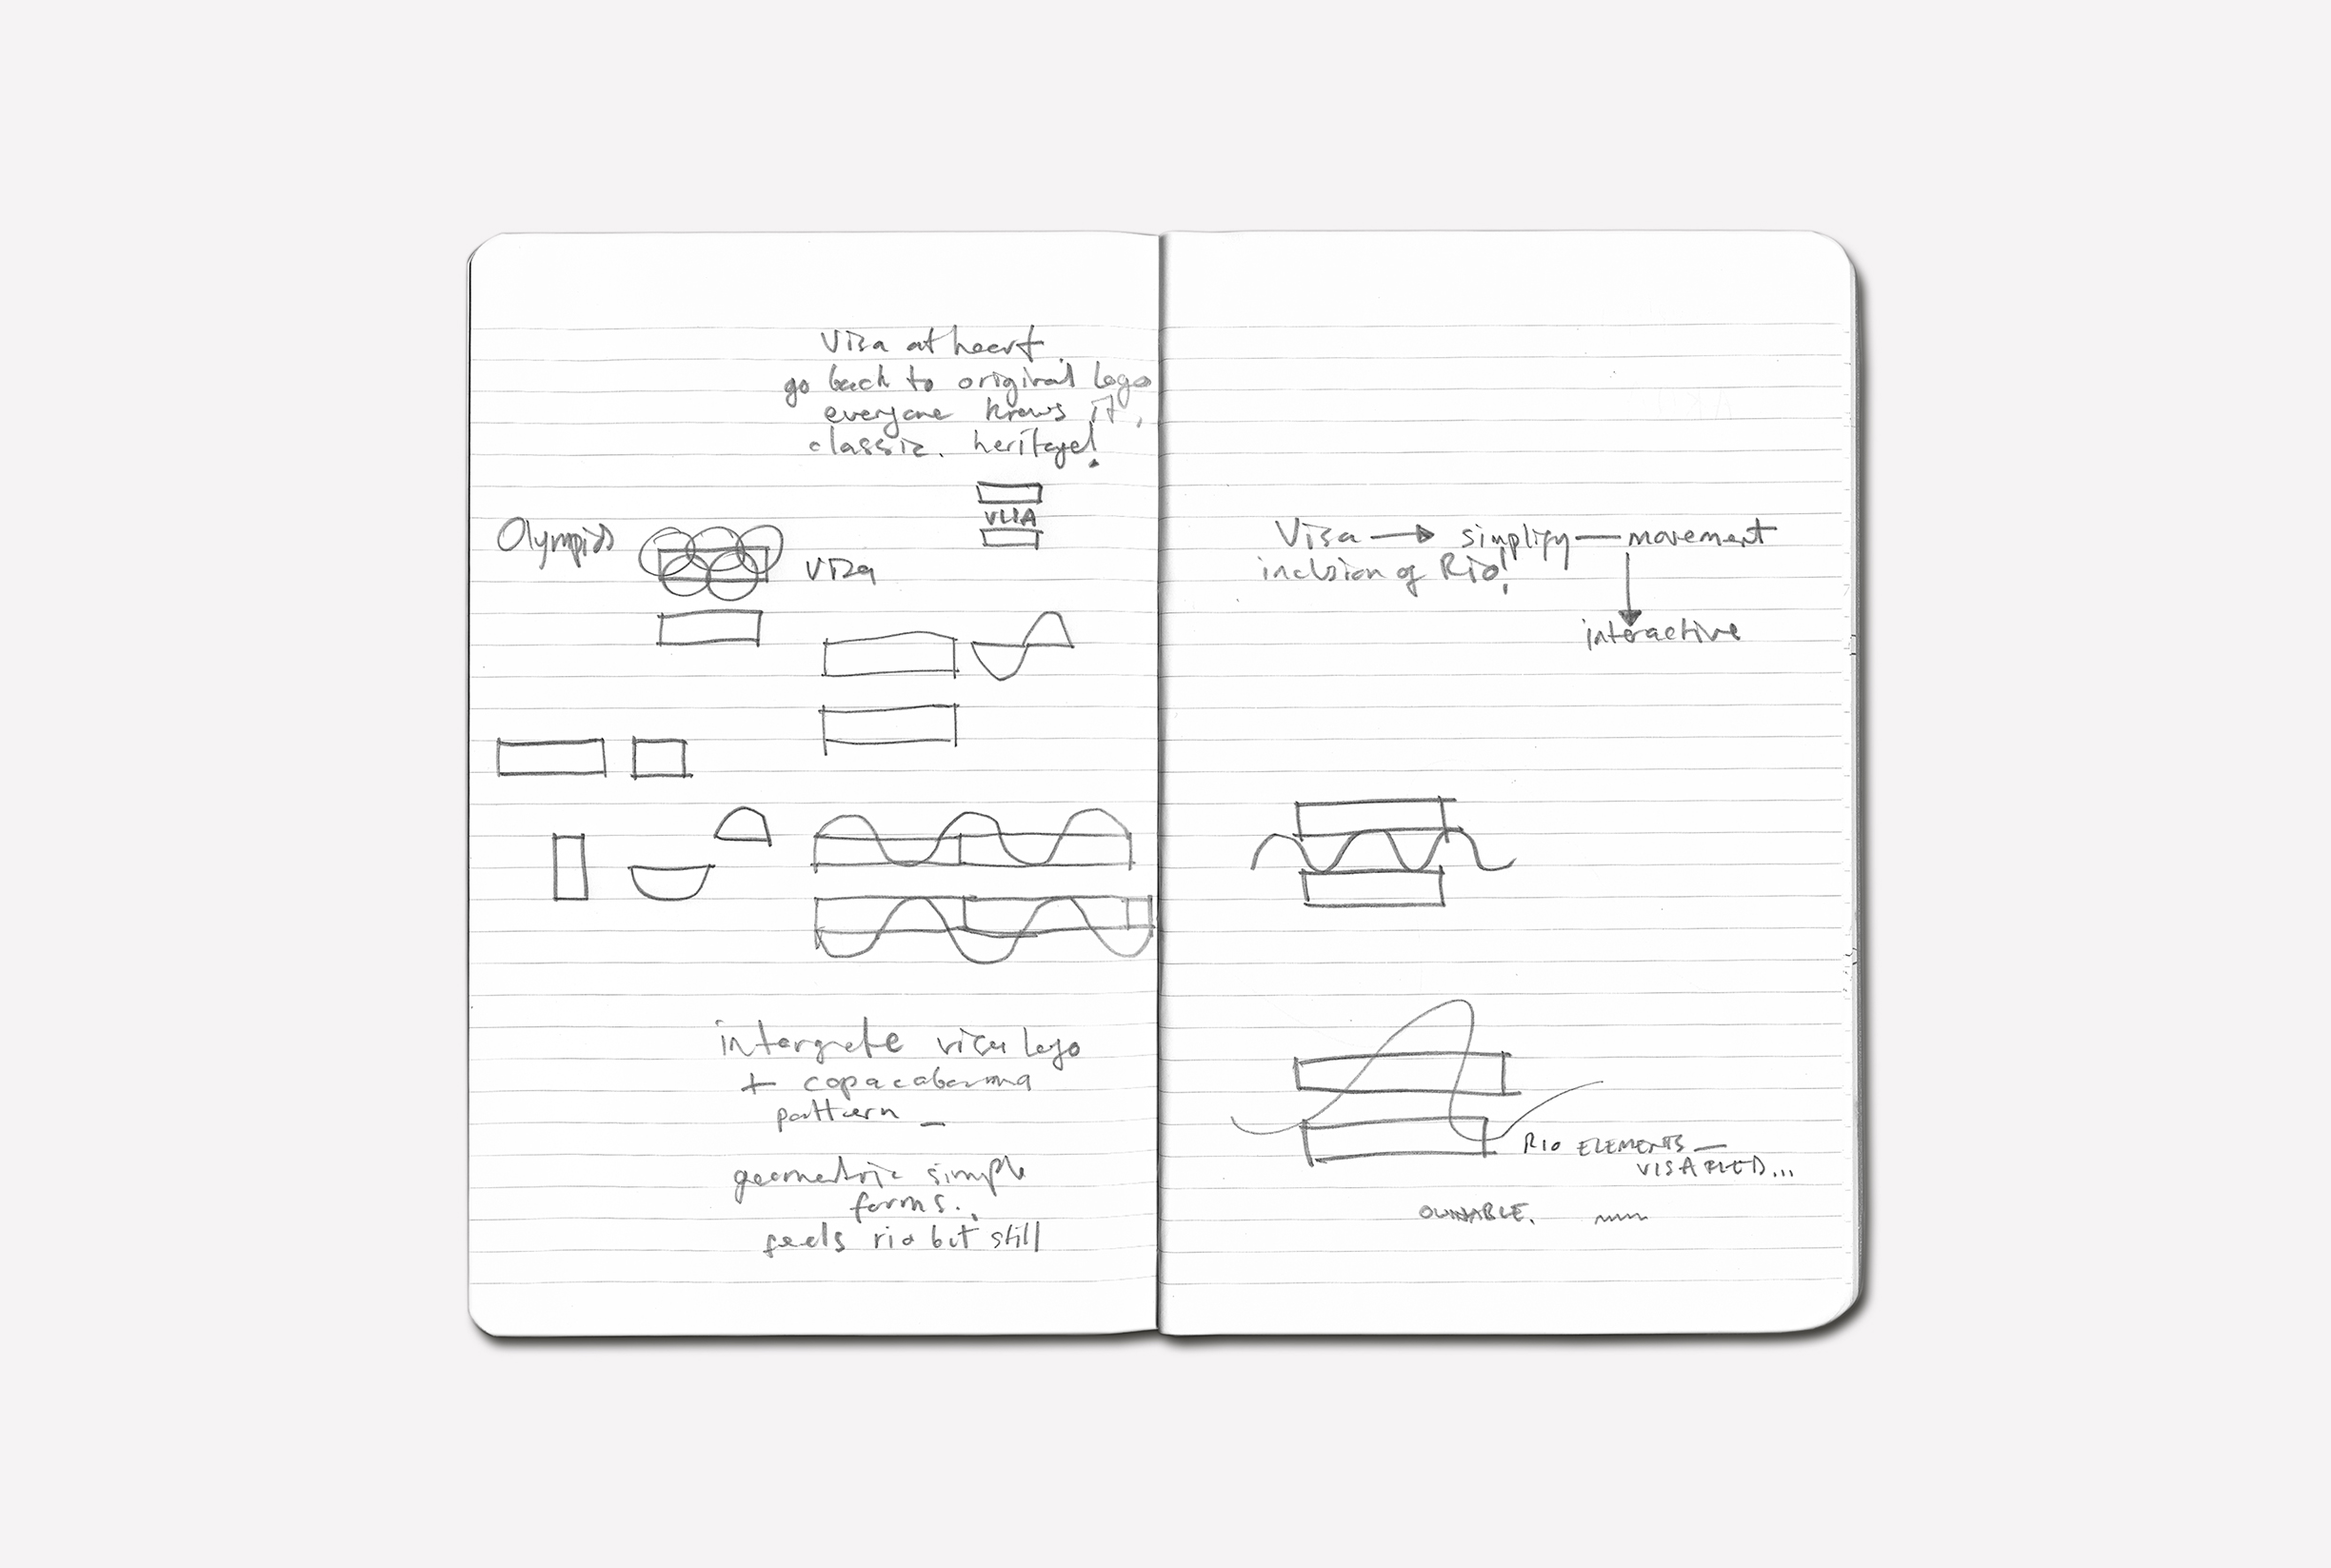 Visa at heart
go back to original logo
everyone knows it,
classic. heritage!
VISA
Olympics
visa
intergrate visa logo
+ copacabanna
pattern —
geometric simple
forms..
feels rio but still
Visa → simplify — movement
inclusion of Rio!
interactive
RIO ELEMENTS —
VISAFIED...
OWNABLE.